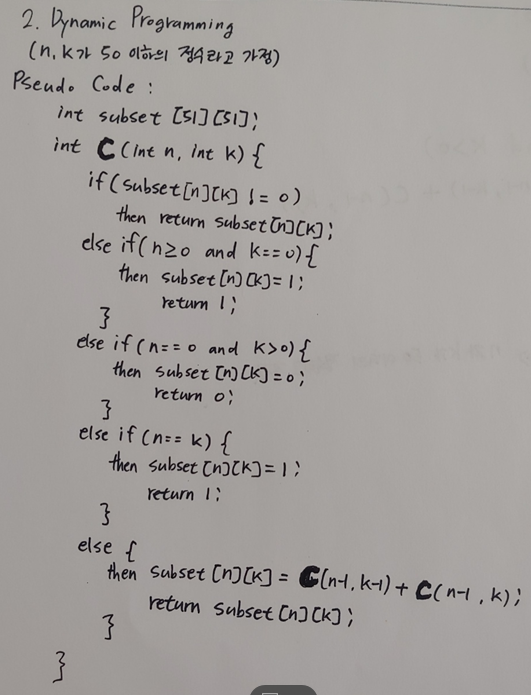 2. Dynamic Programming
(n, k가 50 이하의 정수라고 가정)
Pseudo Code :
int subset [51][51];
int C (int n, int k) {
if (subset[n][k] != 0)
then return subset[n][k];
else if (n≥0 and k==0) {
then subset[n][k]=1;
return 1;
}
else if (n==0 and k>0) {
then subset[n][k]=0;
return 0;
}
else if (n==k) {
then subset[n][k]=1;
return 1;
}
else {
then subset[n][k] = C(n-1, k-1) + C(n-1, k);
return subset[n][k];
}
}